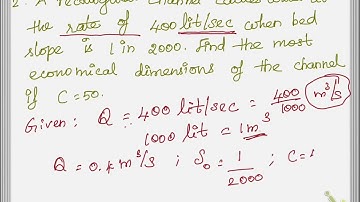 the rate of 400 lit/sec when bed
slope is 1 in 2000. Find the most
economical dimensions of the channel
if C=50.
Given: Q = 400 lit/sec = 400/1000 m³/s
1000 lit = 1m³
Q = 0.4 m³/s ; S₀ = 1/2000 ; C=